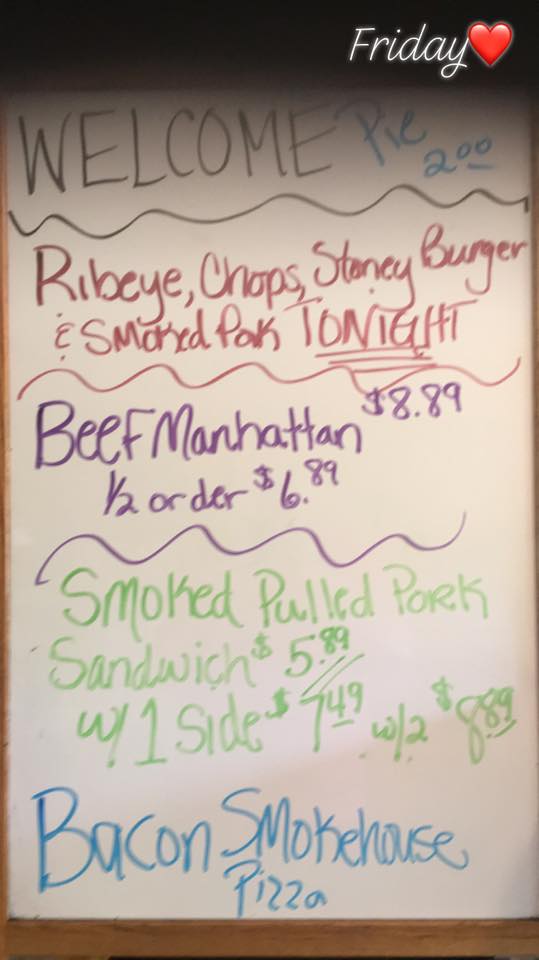 Friday❤️
WELCOME Pie 2.00
Ribeye, Chops, Stoney Burger
& Smoked Pork TONIGHT
Beef Manhattan $8.89
1/2 order $6.89
Smoked Pulled Pork
Sandwich $5.89
w/ 1 Side $7.49 w/2 $8.89
Bacon Smokehouse
Pizza